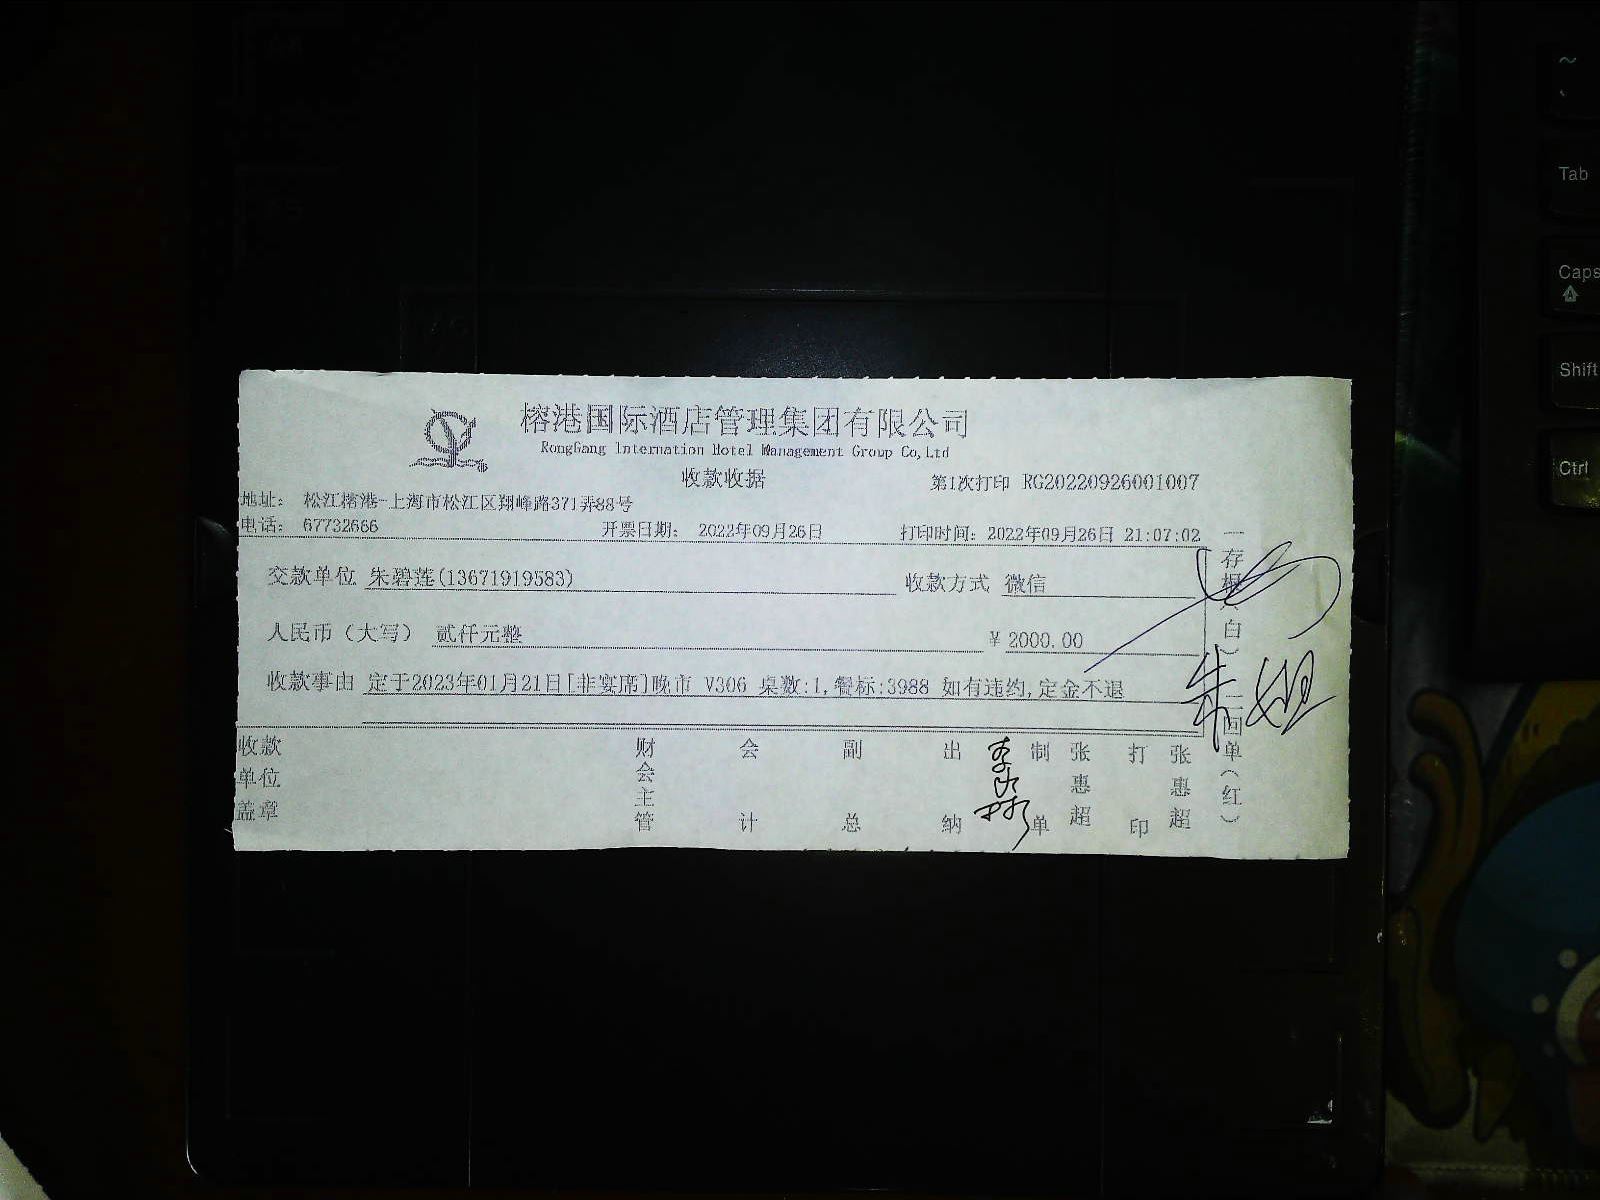 榕港国际酒店管理集团有限公司
RongGang Internation Hotel Management Group Co,Ltd
收款收据
第1次打印 RG20220926001007
地址： 松江榕港-上海市松江区翔峰路371弄88号
电话： 67732666 开票日期： 2022年09月26日 打印时间：2022年09月26日 21:07:02
交款单位 朱碧莲(13671919583) 收款方式 微信
人民币（大写） 贰仟元整 ￥2000.00
收款事由 定于2023年01月21日[非宴席]晚市 V306 桌数:1,餐标:3988 如有违约,定金不退
收款单位盖章 财会主管 会计 副总 出纳 制单 张惠超 打印 张惠超
一存根（白） 二回单（红）
朱
~
Tab
Caps
Shift
Ctrl